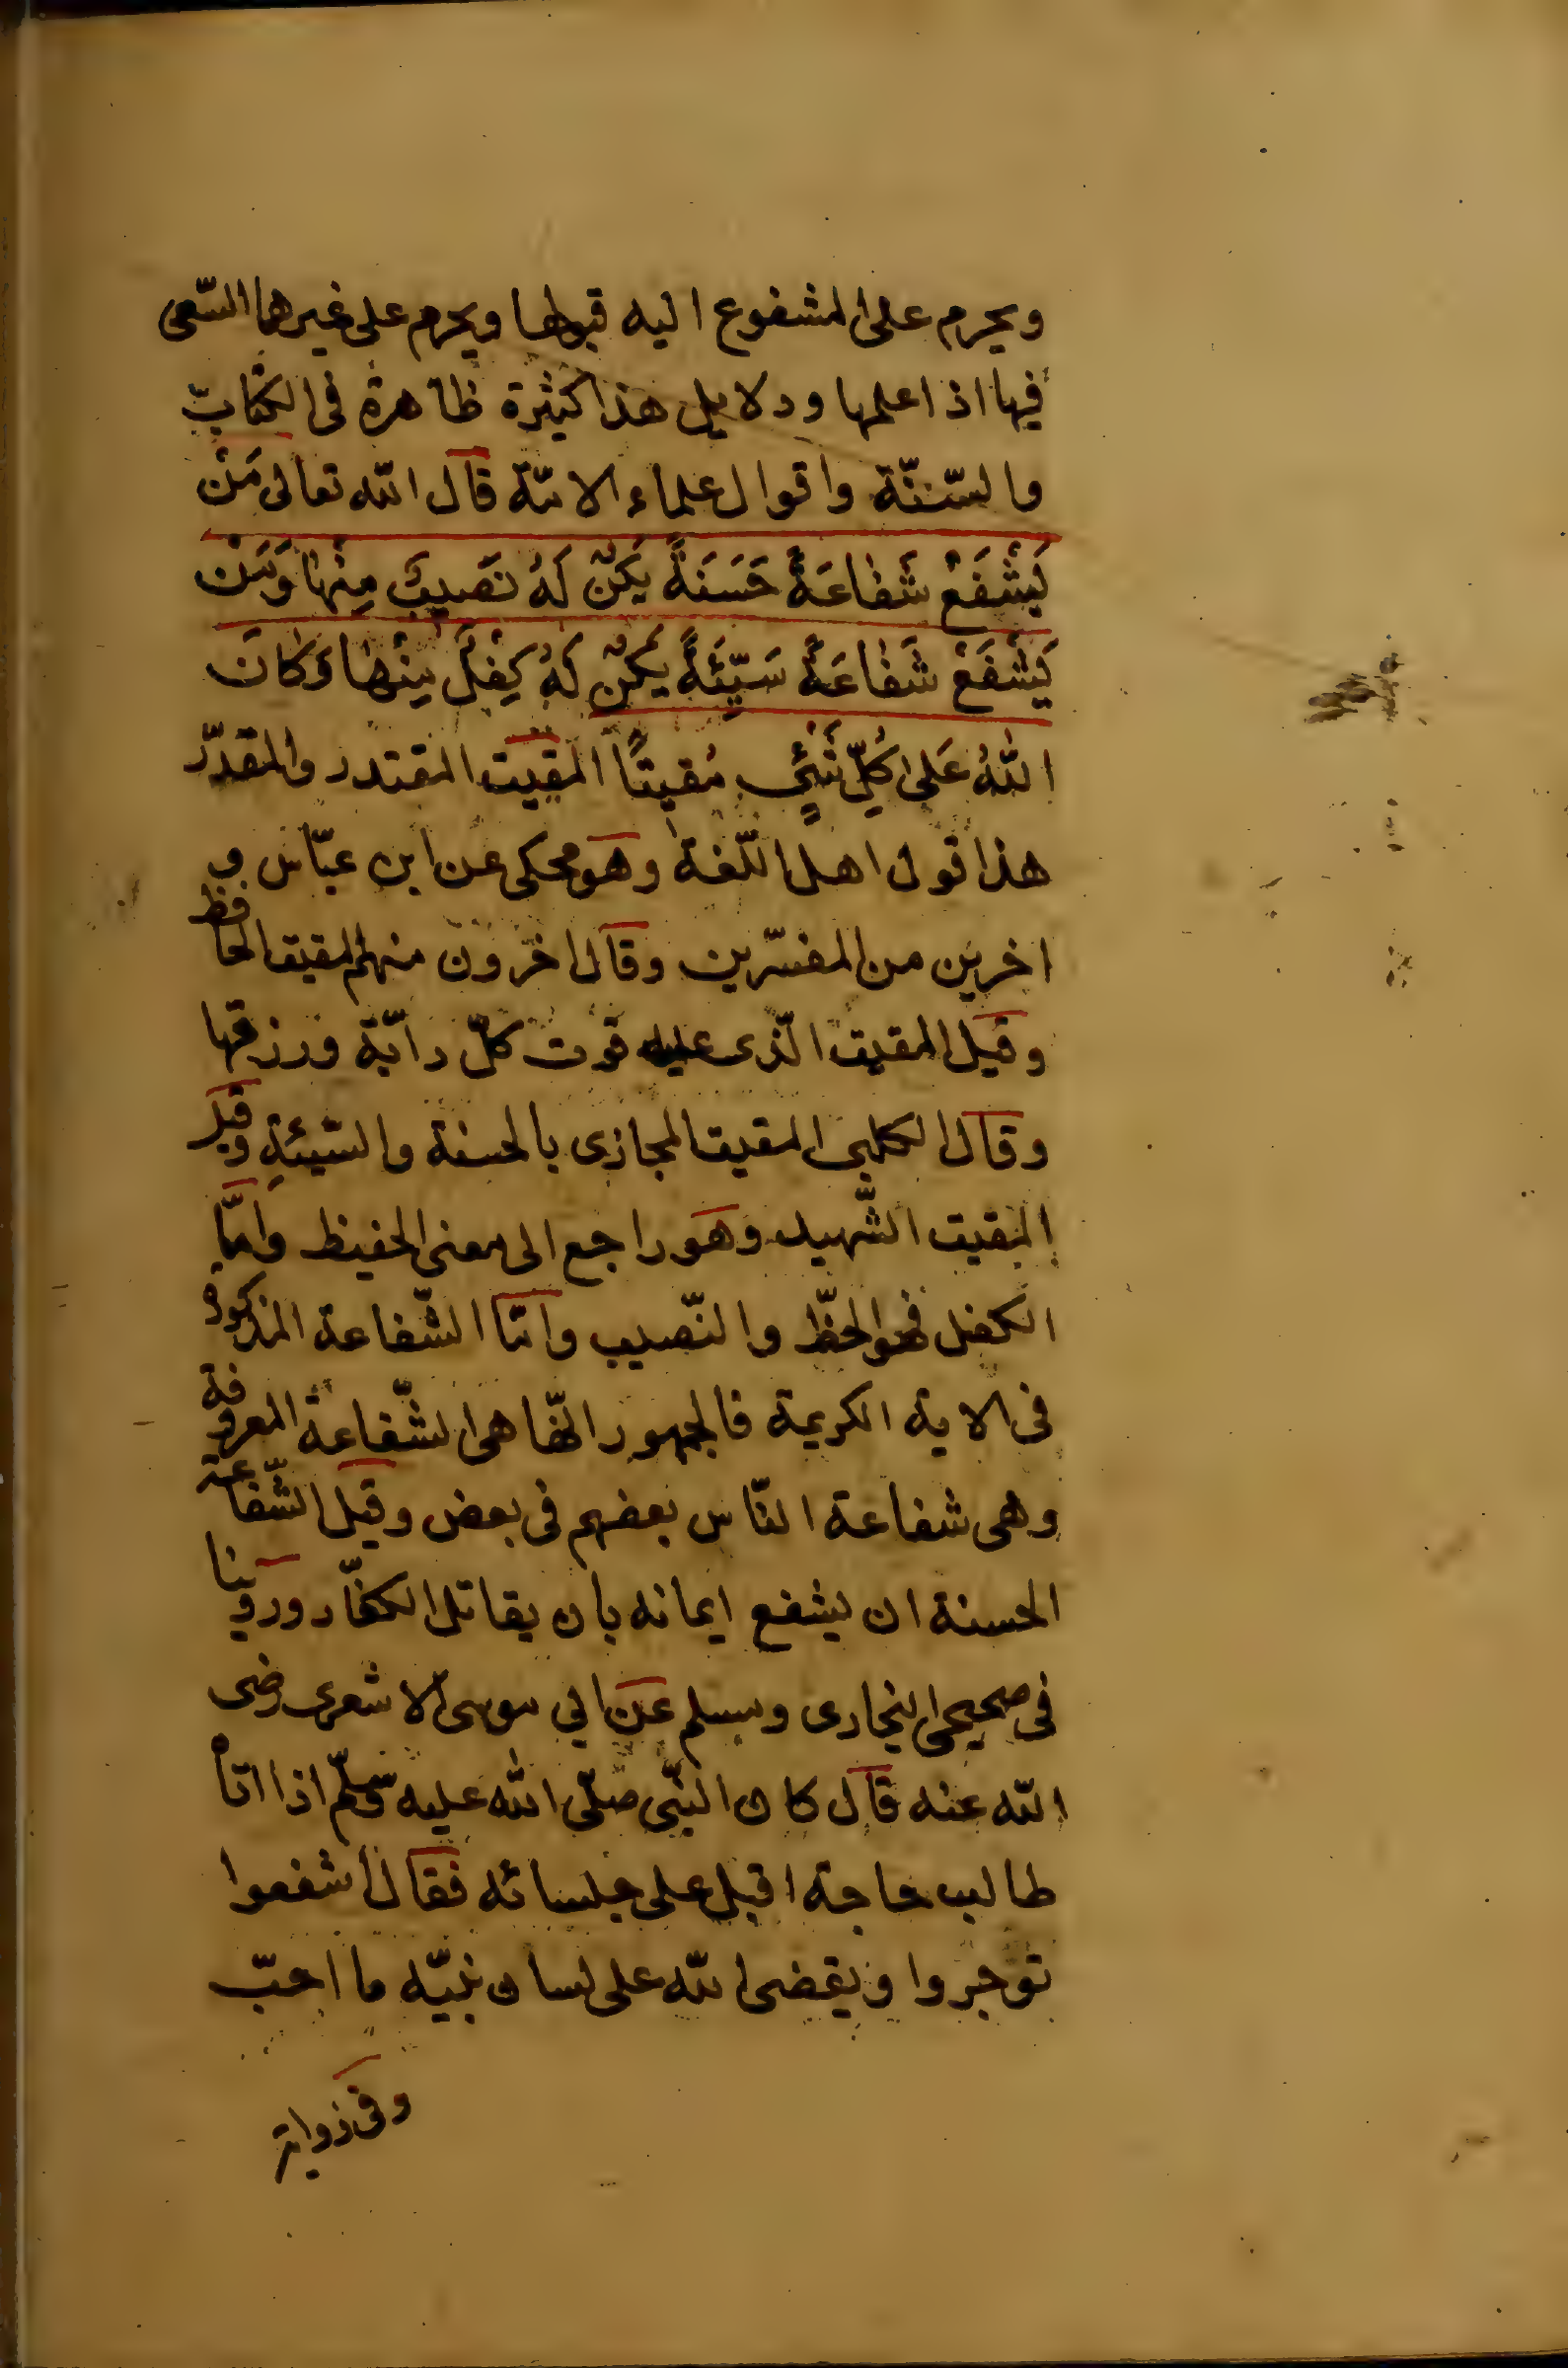 ويحرم على المشفوع اليه قبولها ويحرم على غيرهما السّعى
فيها اذا علمها ودلايل هذا كثيرة ظاهرة فى الكتاب
والسّنّة واقوال علماء الامّة قال الله تعالى مَنْ
يَشْفَعْ شَفَاعَةً حَسَنَةً يَكُنْ لَهُ نَصِيبٌ مِنْهَا وَمَنْ
يَشْفَعْ شَفَاعَةً سَيِّئَةً يَكُنْ لَهُ كِفْلٌ مِنْهَا وَكَانَ
اللهُ عَلَى كُلِّ شَيْءٍ مُقِيتًا المقيت المقتدر والمقدّر
هذا قول اهل اللّغة وهو محكى عن ابن عبّاس و
اخرين من المفسّرين وقال اخرون منهم المقيت الحافظ
وقيل المقيت الّذى عليه قوت كلّ دابّة ورزقها
وقال الكلبى المقيت المجازى بالحسنة والسّيئةِ وقيل
المقيت الشّهيد وهو راجع الى معنى الحفيظ وامّا
الكفل فهو الحظّ والنّصيب وامّا الشّفاعة المذكورة
فى الاية الكريمة فالجمهور انّها هى الشّفاعة المعروفة
وهى شفاعة النّاس بعضهم فى بعض وقيل الشّفاعة
الحسنة ان يشفع ايمانه بان يقاتل الكفّار وروينا
فى صحيحى البخارى ومسلم عن ابي موسى الاشعرى رضى
الله عنه قال كان النبّى صلّى الله عليه وسلّم اذا اتاه
طالب حاجة اقبل على جلسائه فقال اشفعوا
توجروا ويقضى الله على لسان نبيّه ما احبّ
وفى رواية